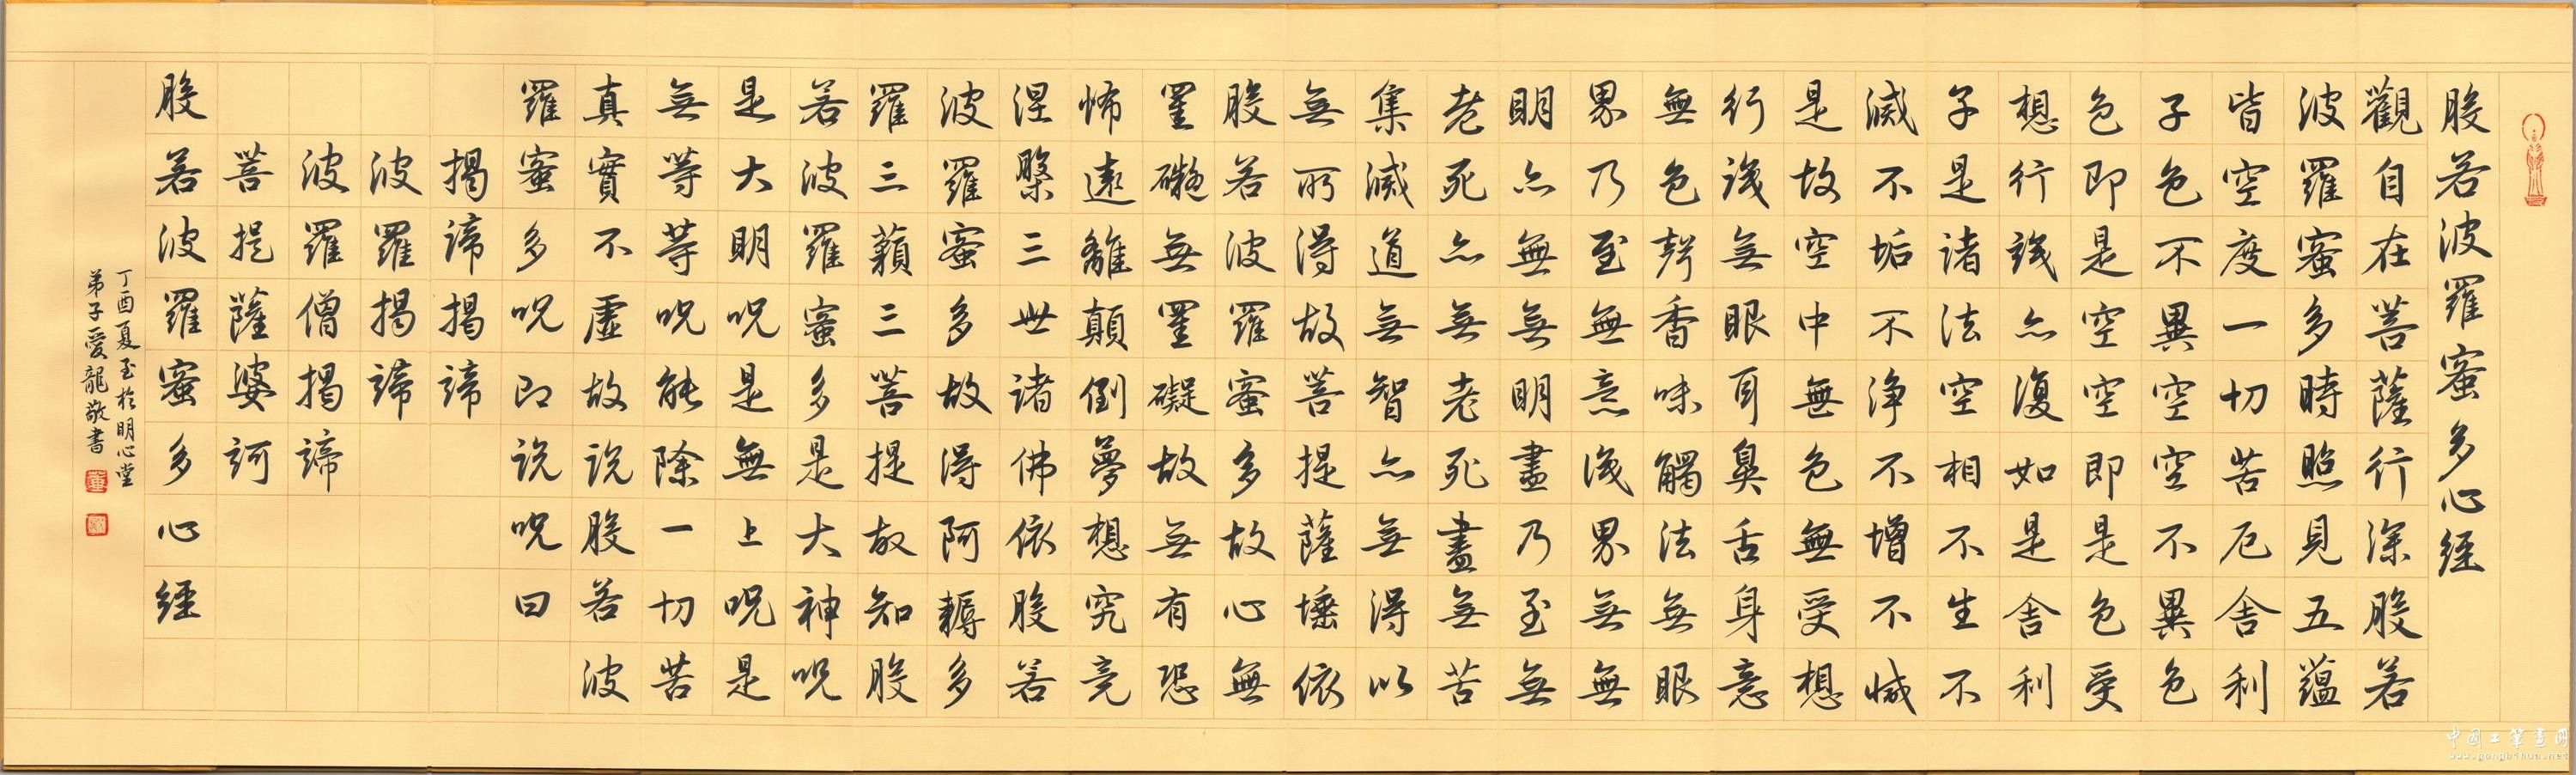 般若波羅蜜多心經
觀自在菩薩行深般若
波羅蜜多時照見五蘊
皆空度一切苦厄舍利
子色不異空空不異色
色即是空空即是色受
想行識亦復如是舍利
子是諸法空相不生不
滅不垢不淨不增不減
是故空中無色無受想
行識無眼耳鼻舌身意
無色聲香味觸法無眼
界乃至無意識界無無
明亦無無明盡乃至無
老死亦無老死盡無苦
集滅道無智亦無得以
無所得故菩提薩埵依
般若波羅蜜多故心無
罣礙無罣礙故無有恐
怖遠離顛倒夢想究竟
涅槃三世諸佛依般若
波羅蜜多故得阿耨多
羅三藐三菩提故知般
若波羅蜜多是大神呪
是大明呪是無上呪是
無等等呪能除一切苦
真實不虛故說般若波
羅蜜多呪即說呪曰
揭諦揭諦
波羅揭諦
波羅僧揭諦
菩提薩婆訶
般若波羅蜜多心經
丁酉夏至於明心堂
弟子愛龍敬書
中国工笔画网
www.gongbihua.net